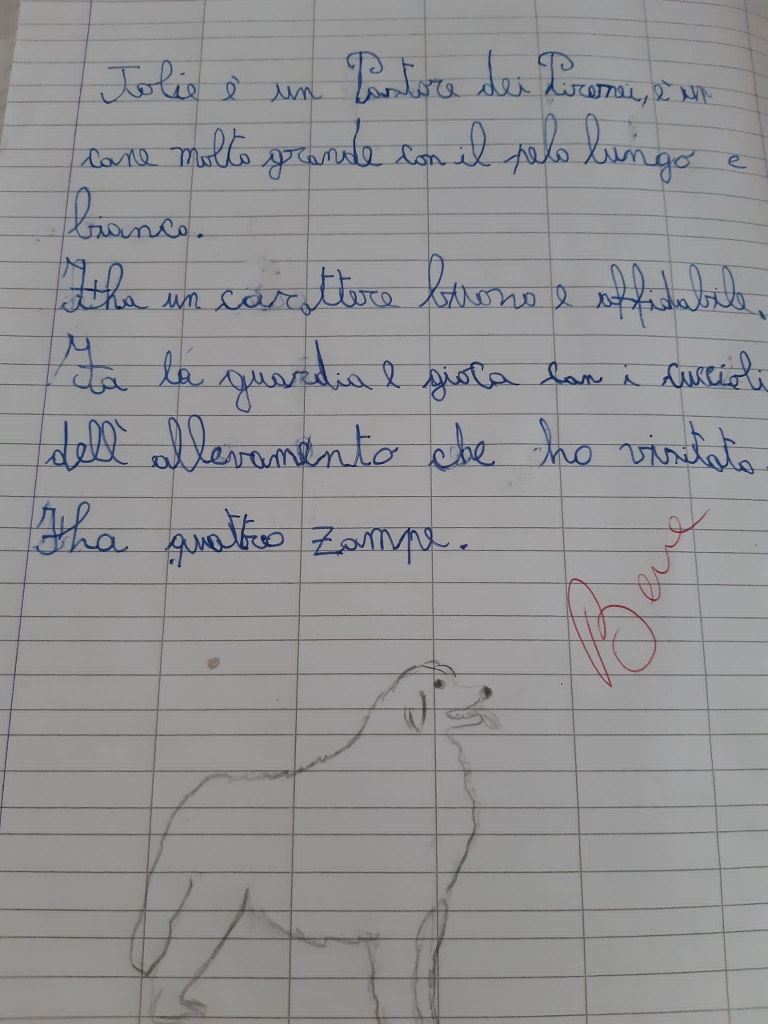 Jolie è un Pastore dei Pirenei, è un
cane molto grande con il pelo lungo e
bianco.
Ha un carattere buono e affidabile.
Fa la guardia e gioca con i cuccioli
dell'allevamento che ho visitato.
Ha quattro zampe.
Bene